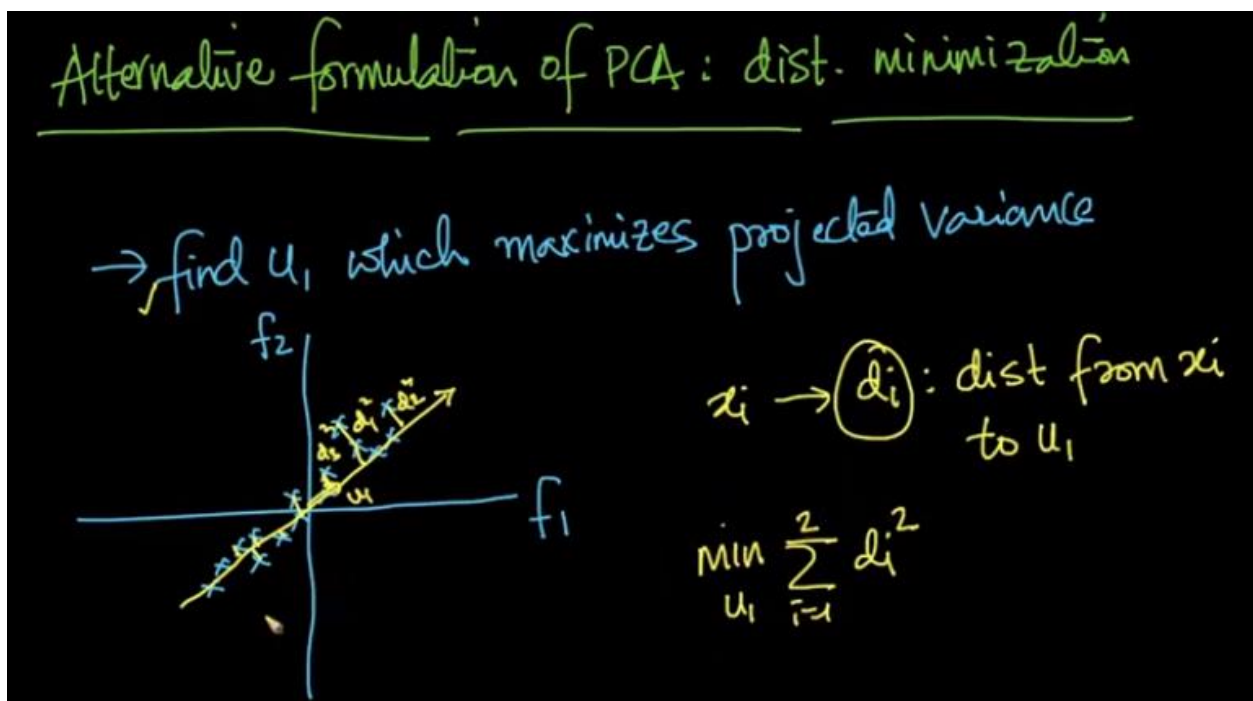 Alternative formulation of PCA : dist. minimization
→ find u₁ which maximizes projected variance
f₂
d₃² d₁² d₂²
u₁
f₁
xᵢ → dᵢ : dist from xᵢ
to u₁
min 2
u₁ Σ dᵢ²
i=1